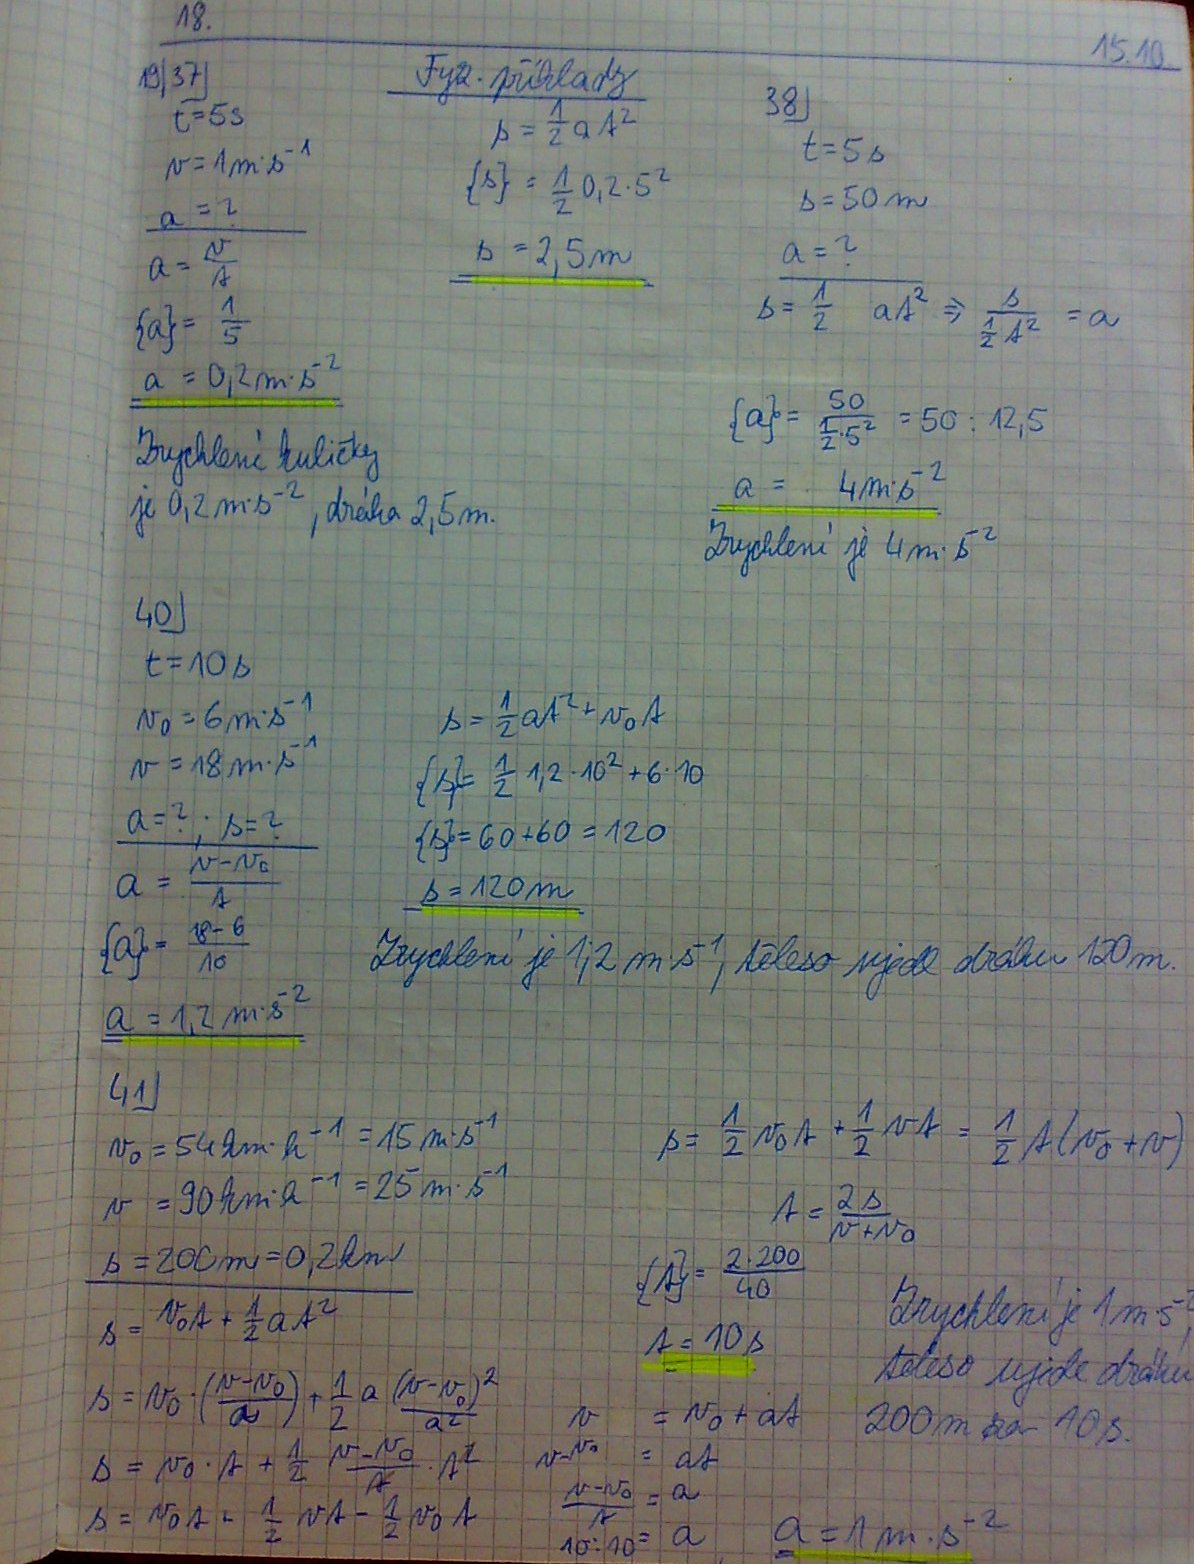 18.
15.10.
Fyz. příklady
19|37)
t=5s
v=1m·s⁻¹
a=?
a = v/t
{a} = 1/5
a = 0,2m·s⁻²
Zrychlení kuličky
je 0,2m·s⁻², dráha 2,5m.
s = 1/2 at²
{s} = 1/2 0,2·5²
s = 2,5m
38)
t=5s
s=50m
a=?
s = 1/2 at² ⇒ s/(1/2 t²) = a
{a} = 50/(1/2·5²) = 50 : 12,5
a = 4m·s⁻²
Zrychlení je 4m·s⁻²
40)
t=10s
v₀=6m·s⁻¹
v=18m·s⁻¹
a=? ; s=?
a = (v-v₀)/t
{a} = (18-6)/10
a = 1,2m·s⁻²
s = 1/2 at² + v₀t
{s} = 1/2 1,2·10² + 6·10
{s} = 60+60 = 120
s = 120m
Zrychlení je 1,2m·s⁻¹, těleso ujede dráhu 120m.
41)
v₀ = 54km·h⁻¹ = 15m·s⁻¹
v = 90km·h⁻¹ = 25m·s⁻¹
s = 200m = 0,2km
s = v₀t + 1/2 at²
s = v₀·((v-v₀)/a) + 1/2 a (v-v₀)²/a²
s = v₀·t + 1/2 (v-v₀)/t · t²
s = v₀t + 1/2 vt - 1/2 v₀t
s = 1/2 v₀t + 1/2 vt = 1/2 t(v₀+v)
t = 2s/(v+v₀)
{t} = 2·200/40
t = 10s
v = v₀ + at
v-v₀ = at
(v-v₀)/t = a
10:10 = a
a = 1m·s⁻²
Zrychlení je 1m·s⁻²,
těleso ujede dráhu
200m za 10s.